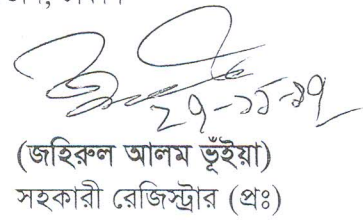 ২৭-১১-১৭
(জহিরুল আলম ভূঁইয়া)
সহকারী রেজিস্ট্রার (প্রঃ)